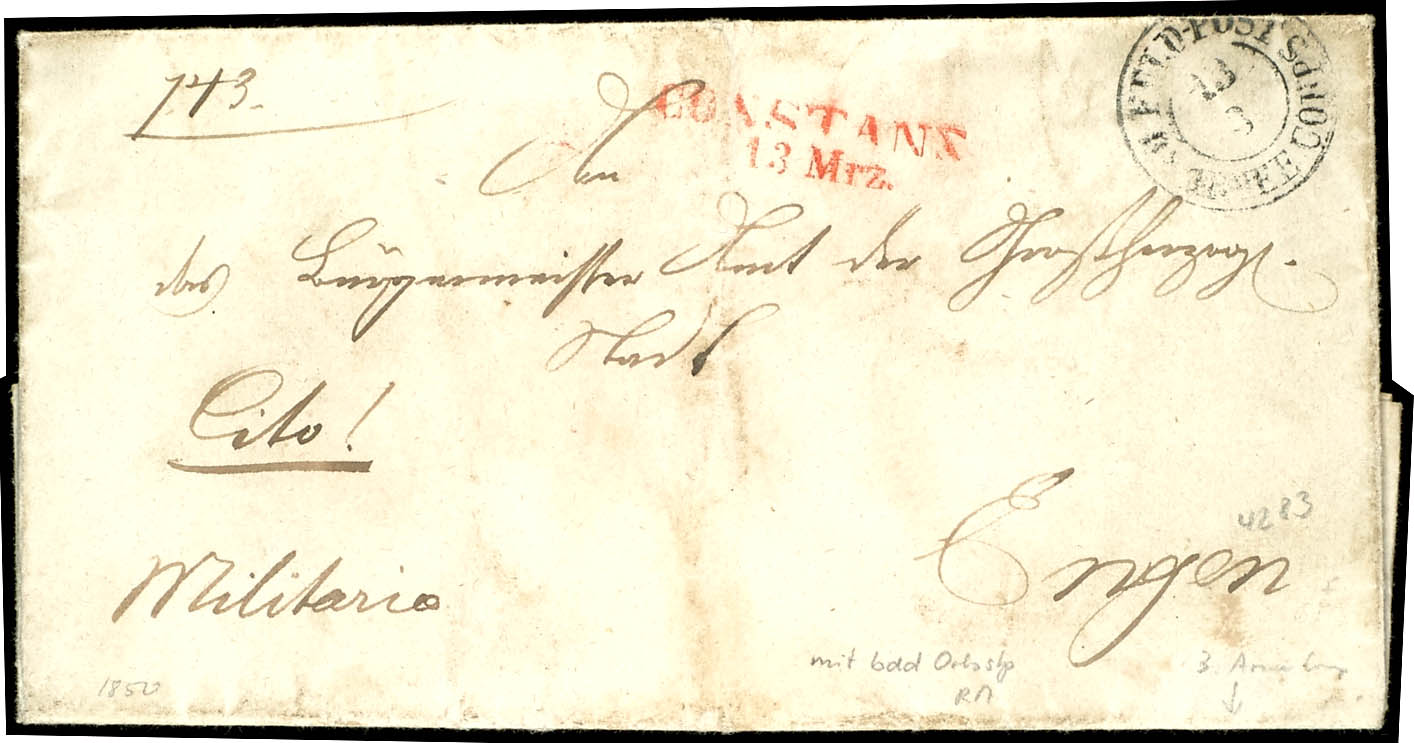 743.
CONSTANZ
13 Mrz.
FELD-POST ARMEE CORPS
13
3
An
das Bürgermeister Amt der Großherzogl.
Stadt
Cito!
Engen
4283
Militaria
mit bdd Ortsstp
RM
3. Armee Corps
1850